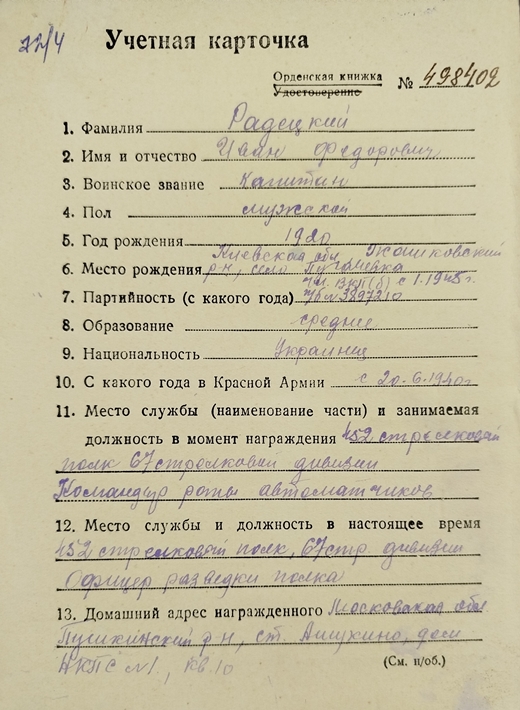 22/4
Учетная карточка
Орденская книжка
Удостоверение
№ 498402
1. Фамилия Радецкий
2. Имя и отчество Иван Федорович
3. Воинское звание Капитан
4. Пол мужской
5. Год рождения 1920
Киевская обл
6. Место рождения р-н, село Пугачевка
чл. ВКП(б) с 1.1945г.
7. Партийность (с какого года) 3897310
8. Образование среднее
9. Национальность Украинец
10. С какого года в Красной Армии с 20.6.1940г
11. Место службы (наименование части) и занимаемая
должность в момент награждения 452 стрелковый
полк 67 стрелковой дивизии
Командир роты автоматчиков
12. Место службы и должность в настоящее время
452 стрелковый полк, 67 стр. дивизии
Офицер разведки полка
13. Домашний адрес награжденного Московская обл
Пушкинский р-н, ст. Ашукино, дом
НКПС №1, кв. 10
(См. н/об.)